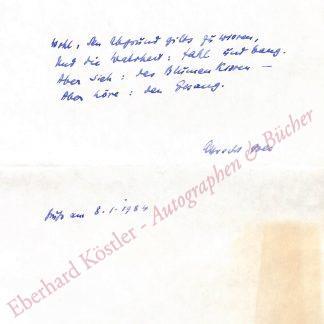 Wohl, den Abgrund gilts zu wissen,
Und die Wahrheit: fahl und bang.
Aber sieh: der Blumen Kissen —
Aber höre: den Gesang.
Albrecht Goes
am 8.1.1984
Eberhard Köstler - Autographen & Bücher